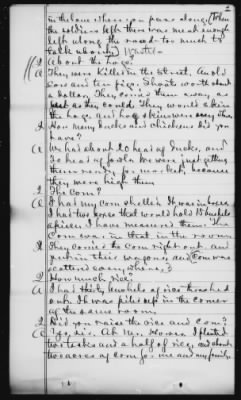 2
in the lane where you pass along. (When
the soldiers left there was meat enough
left along the road too much to
talk about.)
Q About the hogs?
A They were killed in the street. An old
sow and ten pigs. Shoats worth about
a dollar. They carried them away as
best as they could. They would skin
the hogs and hog skins were
Q How many ducks and chickens did you
have?
A We had about 20 head of ducks, and
70 head of fowls. We were just getting
them ready for market, because
they were high then
Q The Corn?
A I had my corn shelled. It was in boxes.
I had two boxes that would hold 15 bushels
apiece. I have measured them. The
Corn was in that in the room.
Q They carried the corn right out, and
put in their wagons, and Corn was
scattered every where.
Q How much rice?
A I had thirty bushels of rice thrashed
out. It was piled up in the corner
of the same room.
Q Did you raise the rice and corn?
A Yes, sir. At Mr. I planted
two tasks and a half of rice, and about
two acres of corn for me and my family.